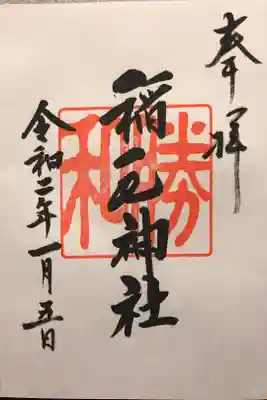 奉拝
勝和
稲毛神社
令和二年一月五日